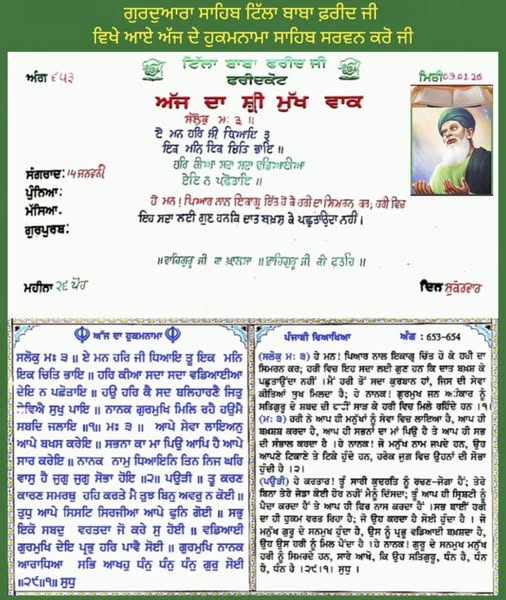 ਗੁਰਦੁਆਰਾ ਸਾਹਿਬ ਟਿੱਲਾ ਬਾਬਾ ਫ਼ਰੀਦ ਜੀ
ਵਿਖੇ ਆਏ ਅੱਜ ਦੇ ਹੁਕਮਨਾਮਾ ਸਾਹਿਬ ਸਰਵਨ ਕਰੋ ਜੀ
ਅੰਗ ੬੫੩
ਟਿੱਲਾ ਬਾਬਾ ਫਰੀਦ ਜੀ
ਫਰੀਦਕੋਟ
ਮਿਤੀ 09.01.26
ਅੱਜ ਦਾ ਸ਼੍ਰੀ ਮੁੱਖ ਵਾਕ
ਸਲੋਕੁ ਮਃ ੩ ॥
ਏ ਮਨ ਹਰਿ ਜੀ ਧਿਆਇ ਤੂ
ਇਕ ਮਨਿ ਇਕ ਚਿਤਿ ਭਾਇ ॥
ਹਰਿ ਕੀਆ ਸਦਾ ਸਦਾ ਵਡਿਆਈਆ
ਦੇਇ ਨ ਪਛੋਤਾਇ ॥
ਸੰਗਰਾਦ: ੧੪ ਜਨਵਰੀ
ਪੁੰਨਿਆ:
ਮੱਸਿਆ:
ਗੁਰਪੁਰਬ:
ਹੇ ਮਨ! ਪਿਆਰ ਨਾਲ ਇਕਾਗ੍ਰ ਚਿੱਤ ਹੋ ਕੇ ਹਰੀ ਦਾ ਸਿਮਰਨ ਕਰ; ਹਰੀ ਵਿਚ
ਇਹ ਸਦਾ ਲਈ ਗੁਣ ਹਨ ਕਿ ਦਾਤ ਬਖ਼ਸ਼ ਕੇ ਪਛੁਤਾਉਂਦਾ ਨਹੀਂ।
॥ ਵਾਹਿਗੁਰੂ ਜੀ ਕਾ ਖ਼ਾਲਸਾ ॥ ਵਾਹਿਗੁਰੂ ਜੀ ਕੀ ਫ਼ਤਹਿ ॥
ਮਹੀਨਾ ੨੬ ਪੋਹ
ਦਿਨ ਸ਼ੁਕਰਵਾਰ
ਅੱਜ ਦਾ ਹੁਕਮਨਾਮਾ
ਸਲੋਕੁ ਮਃ ੩ ॥ ਏ ਮਨ ਹਰਿ ਜੀ ਧਿਆਇ ਤੂ ਇਕ ਮਨਿ
ਇਕ ਚਿਤਿ ਭਾਇ ॥ ਹਰਿ ਕੀਆ ਸਦਾ ਸਦਾ ਵਡਿਆਈਆ
ਦੇਇ ਨ ਪਛੋਤਾਇ ॥ ਹਉ ਹਰਿ ਕੈ ਸਦ ਬਲਿਹਾਰਣੈ ਜਿਤੁ
ਸੇਵਿਐ ਸੁਖੁ ਪਾਇ ॥ ਨਾਨਕ ਗੁਰਮੁਖਿ ਮਿਲਿ ਰਹੈ ਹਉਮੈ
ਸਬਦਿ ਜਲਾਇ ॥੧॥ ਮਃ ੩ ॥ ਆਪੇ ਸੇਵਾ ਲਾਇਅਨੁ
ਆਪੇ ਬਖਸ ਕਰੇਇ ॥ ਸਭਨਾ ਕਾ ਮਾ ਪਿਉ ਆਪਿ ਹੈ ਆਪੇ
ਸਾਰ ਕਰੇਇ ॥ ਨਾਨਕ ਨਾਮੁ ਧਿਆਇਨਿ ਤਿਨ ਨਿਜ ਘਰਿ
ਵਾਸੁ ਹੈ ਜੁਗੁ ਜੁਗੁ ਸੋਭਾ ਹੋਇ ॥੨॥ ਪਉੜੀ ॥ ਤੂ ਕਰਣ
ਕਾਰਣ ਸਮਰਥੁ ਹਹਿ ਕਰਤੇ ਮੈ ਤੁਝ ਬਿਨੁ ਅਵਰੁ ਨ ਕੋਈ ॥
ਤੁਧੁ ਆਪੇ ਸਿਸਟਿ ਸਿਰਜੀਆ ਆਪੇ ਫੁਨਿ ਗੋਈ ॥ ਸਭੁ
ਇਕੋ ਸਬਦੁ ਵਰਤਦਾ ਜੋ ਕਰੇ ਸੁ ਹੋਈ ॥ ਵਡਿਆਈ
ਗੁਰਮੁਖਿ ਦੇਇ ਪ੍ਰਭੁ ਹਰਿ ਪਾਵੈ ਸੋਈ ॥ ਗੁਰਮੁਖਿ ਨਾਨਕ
ਆਰਾਧਿਆ ਸਭਿ ਆਖਹੁ ਧੰਨੁ ਧੰਨੁ ਧੰਨੁ ਗੁਰੁ ਸੋਈ
॥੨੯॥੧॥ ਸੁਧੁ
ਪੰਜਾਬੀ ਵਿਆਖਿਆ ਅੰਗ : 653-654
(ਸਲੋਕੁ ਮਃ ੩) ਹੇ ਮਨ! ਪਿਆਰ ਨਾਲ ਇਕਾਗ੍ਰ ਚਿੱਤ ਹੋ ਕੇ ਹਰੀ ਦਾ
ਸਿਮਰਨ ਕਰ; ਹਰੀ ਵਿਚ ਇਹ ਸਦਾ ਲਈ ਗੁਣ ਹਨ ਕਿ ਦਾਤ ਬਖ਼ਸ਼ ਕੇ
ਪਛੁਤਾਉਂਦਾ ਨਹੀਂ। ਮੈਂ ਹਰੀ ਤੋਂ ਸਦਾ ਕੁਰਬਾਨ ਹਾਂ, ਜਿਸ ਦੀ ਸੇਵਾ
ਕੀਤਿਆਂ ਸੁਖ ਮਿਲਦਾ ਹੈ; ਹੇ ਨਾਨਕ! ਗੁਰਮੁਖ ਜਨ ਅਹੰਕਾਰ ਨੂੰ
ਸਤਿਗੁਰੂ ਦੇ ਸ਼ਬਦ ਦੀ ਰਾਹੀਂ ਸਾੜ ਕੇ ਹਰੀ ਵਿਚ ਮਿਲੇ ਰਹਿੰਦੇ ਹਨ ।੧।
(ਮਃ ੩) ਹਰੀ ਨੇ ਆਪ ਹੀ ਮਨੁੱਖਾਂ ਨੂੰ ਸੇਵਾ ਵਿਚ ਲਾਇਆ ਹੈ, ਆਪ ਹੀ
ਬਖ਼ਸ਼ਸ਼ ਕਰਦਾ ਹੈ, ਆਪ ਹੀ ਸਭਨਾਂ ਦਾ ਮਾਂ ਪਿਉ ਹੈ ਤੇ ਆਪ ਹੀ ਸਭ
ਦੀ ਸੰਭਾਲ ਕਰਦਾ ਹੈ । ਹੇ ਨਾਨਕ! ਜੋ ਮਨੁੱਖ ਨਾਮ ਜਪਦੇ ਹਨ, ਉਹ
ਆਪਣੇ ਟਿਕਾਣੇ ਤੇ ਟਿਕੇ ਹੁੰਦੇ ਹਨ, ਹਰੇਕ ਜੁਗ ਵਿਚ ਉਹਨਾਂ ਦੀ ਸੋਭਾ
ਹੁੰਦੀ ਹੈ ।੨।
(ਪਉੜੀ) ਹੇ ਕਰਤਾਰ! ਤੂੰ ਸਾਰੀ ਕੁਦਰਤਿ ਨੂੰ ਰਚਣ-ਜੋਗਾ ਹੈਂ; ਤੇਰੇ
ਬਿਨਾ ਤੇਰੇ ਜੇਡਾ ਕੋਈ ਹੋਰ ਨਹੀਂ ਮੈਨੂੰ ਦਿੱਸਦਾ; ਤੂੰ ਆਪ ਹੀ ਸ੍ਰਿਸ਼ਟੀ ਨੂੰ
ਪੈਦਾ ਕਰਦਾ ਹੈਂ ਤੇ ਆਪ ਹੀ ਫਿਰ ਨਾਸ ਕਰਦਾ ਹੈਂ । ਸਭ ਥਾਈਂ ਹਰੀ
ਦਾ ਹੀ ਹੁਕਮ ਵਰਤ ਰਿਹਾ ਹੈ; ਜੋ ਉਹ ਕਰਦਾ ਹੈ ਸੋਈ ਹੁੰਦਾ ਹੈ । ਜੋ
ਮਨੁੱਖ ਗੁਰੂ ਦੇ ਸਨਮੁਖ ਹੁੰਦਾ ਹੈ, ਉਸ ਨੂੰ ਪ੍ਰਭੂ ਵਡਿਆਈ ਬਖ਼ਸ਼ਦਾ ਹੈ,
ਉਹ ਉਸ ਹਰੀ ਨੂੰ ਮਿਲ ਪੈਂਦਾ ਹੈ । ਹੇ ਨਾਨਕ! ਗੁਰੂ ਦੇ ਸਨਮੁਖ ਮਨੁੱਖ
ਹਰੀ ਨੂੰ ਸਿਮਰਦੇ ਹਨ, ਸਾਰੇ ਆਖੋ, ਕਿ ਉਹ ਸਤਿਗੁਰੂ, ਧੰਨ ਹੈ, ਧੰਨ
ਹੈ, ਧੰਨ ਹੈ ।੨੯।੧। ਸੁਧੁ ।